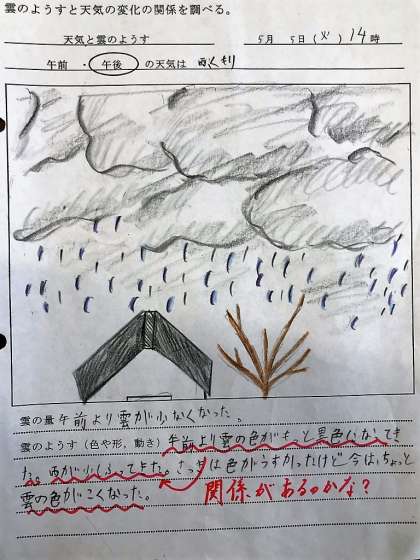 雲のようすと天気の変化の関係を調べる。
天気と雲のようす 5月 5日(火) 14時
午前・午後 の天気は
雲の量 午前より雲が少なくなった。
雲のようす(色や形、動き) 午前より雲の色がもっと黒色になってき
た。雨が少しふってきた。さっきは色がうすかったけど今は、ちょっと
雲の色がこくなった。
関係があるのかな?